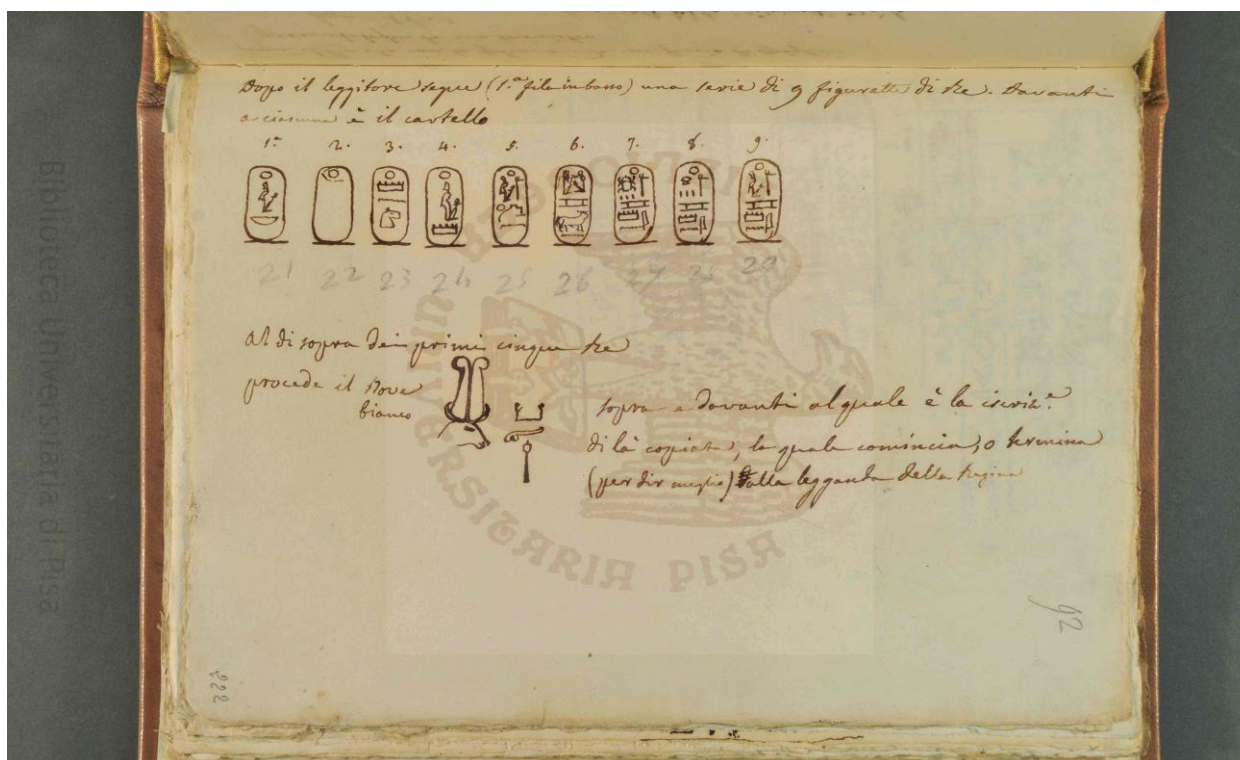 Dopo il leggitore segue (1.ª fila in basso) una serie di 9 figurette di Re. Davanti
a ciascuna è il cartello
1.ª 2. 3. 4. 5. 6. 7. 8. 9.
21 22 23 24 25 26 27 28 29
al di sopra dei primi cinque Re
procede il Bove
bianco
sopra e davanti al quale è la iscriz.e
di là copiata, la quale comincia, o termina
(per dir meglio) dalla leggenda della Regina
92
222
Biblioteca Universitaria di Pisa
UNIVERSITARIA PISA